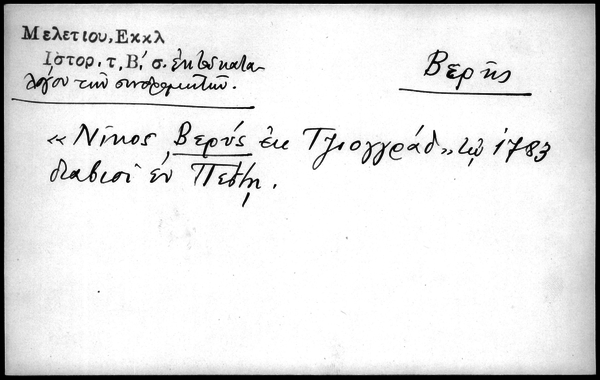 Μελετίου, Εκκλ
Ιστορ. τ. Β', σ. ἐκ τοῦ κατα-
λόγου τῶν συνδρομητῶν.
Βερῆς
« Νίκος Βερύς ἐκ Τζιογγράδ » τῷ 1783
διαβιοῖ ἐν Πέστῃ.